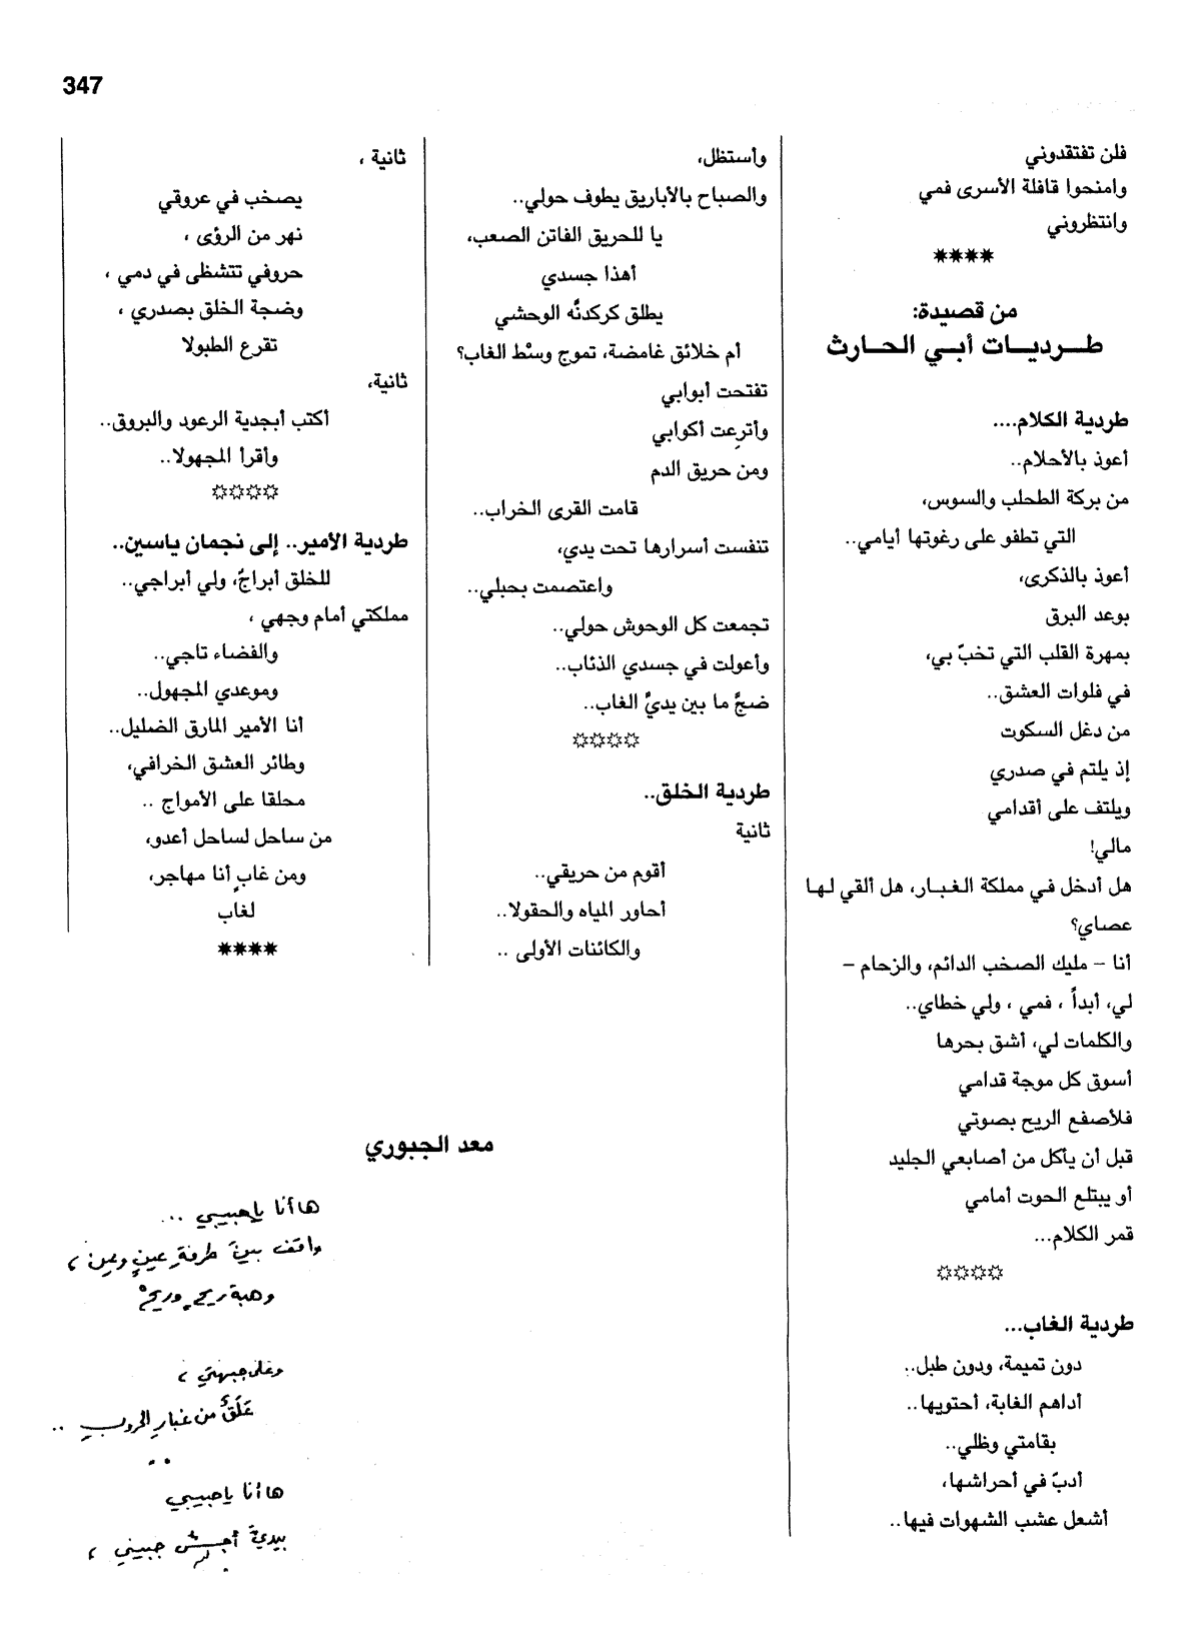 347
فلن تفتقدوني
وامنحوا قافلة الأسرى فمي
وانتظروني
****
من قصيدة:
طـــرديـــات أبـــي الحـــارث
طردية الكلام....
أعوذ بالأحلام..
من بركة الطحلب والسوس،
التي تطفو على رغوتها أيامي..
أعوذ بالذكرى،
بوعد البرق
بمهرة القلب التي تخبّ بي،
في فلوات العشق..
من دغل السكوت
إذ يلتم في صدري
ويلتف على أقدامي
مالي!
هل أدخل في مملكة الغبـار، هل ألقي لـها
عصاي؟
أنا – مليك الصخب الدائم، والزحام –
لي، أبداً ، فمي ، ولي خطاي..
والكلمات لي، أشق بحرها
أسوق كل موجة قدامي
فلأصفع الريح بصوتي
قبل أن يأكل من أصابعي الجليد
أو يبتلع الحوت أمامي
قمر الكلام...
☼☼☼☼
طردية الغاب...
دون تميمة، ودون طبل..
أداهم الغابة، أحتويها..
بقامتي وظلي..
أدبّ في أحراشها،
أشعل عشب الشهوات فيها..
وأستظل،
والصباح بالأباريق يطوف حولي..
يا للحريق الفاتن الصعب،
أهذا جسدي
يطلق كركدنَّه الوحشي
أم خلائق غامضة، تموج وسْط الغاب؟
تفتحت أبوابي
وأترعت أكوابي
ومن حريق الدم
قامت القرى الخراب..
تنفست أسرارها تحت يدي،
واعتصمت بحبلي..
تجمعت كل الوحوش حولي..
وأعولت في جسدي الذئاب..
ضجَّ ما بين يديَّ الغاب..
☼☼☼☼
طردية الخلق..
ثانية
أقوم من حريقي..
أحاور المياه والحقولا..
والكائنات الأولى ..
ثانية ،
يصخب في عروقي
نهر من الرؤى ،
حروفي تتشظى في دمي ،
وضجة الخلق بصدري ،
تقرع الطبولا
ثانية،
أكتب أبجدية الرعود والبروق..
وأقرأ المجهولا..
☼☼☼☼
طردية الأمير.. إلى نجمان ياسين..
للخلق أبراجٌ، ولي أبراجي..
مملكتي أمام وجهي ،
والفضاء تاجي..
وموعدي المجهول..
أنا الأمير المارق الضليل..
وطائر العشق الخرافي،
محلقا على الأمواج ..
من ساحل لساحل أعدو،
ومن غابٍ أنا مهاجر،
لغاب
****
معد الجبوري
ها أنا يا حبيبي ..
واقف بينَ طرفةِ عينٍ وعينٍ ،
وهبة ريحٍ وريحْ
وعلى جبهتي ،
عَلَقٌ من غبار الحروب ..
..
ها أنا يا حبيبي
بيديَّ أجسّ جبيني ،